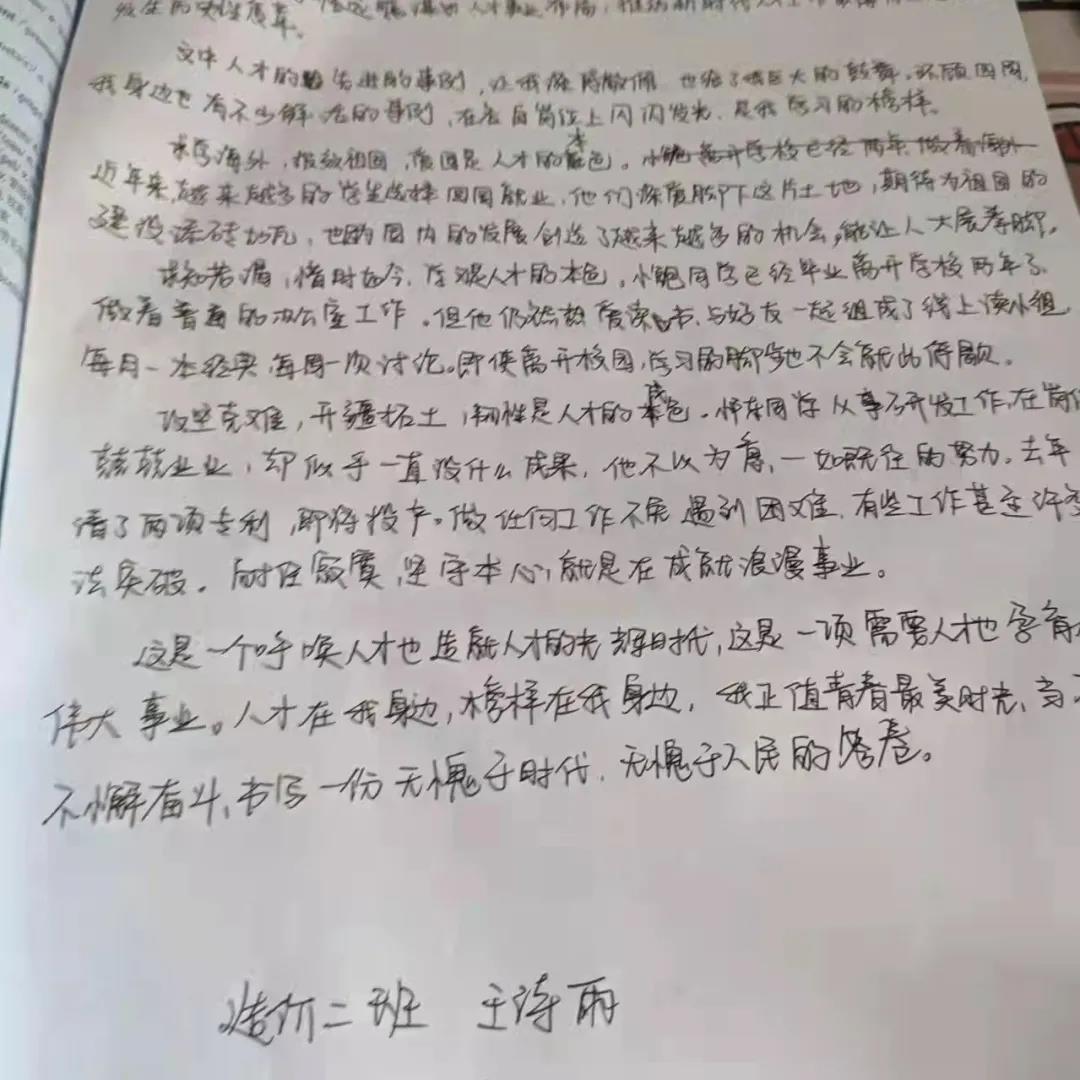 发生的历史性变革。
文中人才的先进的事例，让我深感敬佩，也给了我巨大的鼓舞，环顾四周，
我身边也有不少鲜活的事例，在各自岗位上闪闪发光，是我学习的榜样。
求学海外，报效祖国，爱国是人才的本色。小鲍离开学校已经两年做着海外
近年来越来越多的学生选择回国就业，他们深爱脚下这片土地，期待为祖国的
建设添砖加瓦，也因国内的发展创造了越来越多的机会，能让人大展拳脚。
求知若渴，惜时如今，学习是人才的本色，小鲍同学已经毕业离开学校两年了，
做着普通的办公室工作。但他仍然热爱读书，与好友一起组成了线上读小组
每月一本经典，每周一次讨论。即使离开校园，学习的脚步也不会就此停歇。
攻坚克难，开疆拓土，韧性是人才的底色。怀东同学从事了开发工作，在岗位
兢兢业业，却似乎一直没什么成果，他不以为意，一如既往的努力。去年
请了两项专利，即将投产。做任何工作不免遇到困难，有些工作甚至许
法突破。耐住寂寞，坚守本心，就是在成就浪漫事业。
这是一个呼唤人才也造就人才的光辉时代，这是一项需要人才也孕育
伟大事业。人才在我身边，榜样在我身边，我正值青春最美时光，当
不懈奋斗，书写一份无愧于时代，无愧于人民的答卷。
造价二班 王诗雨